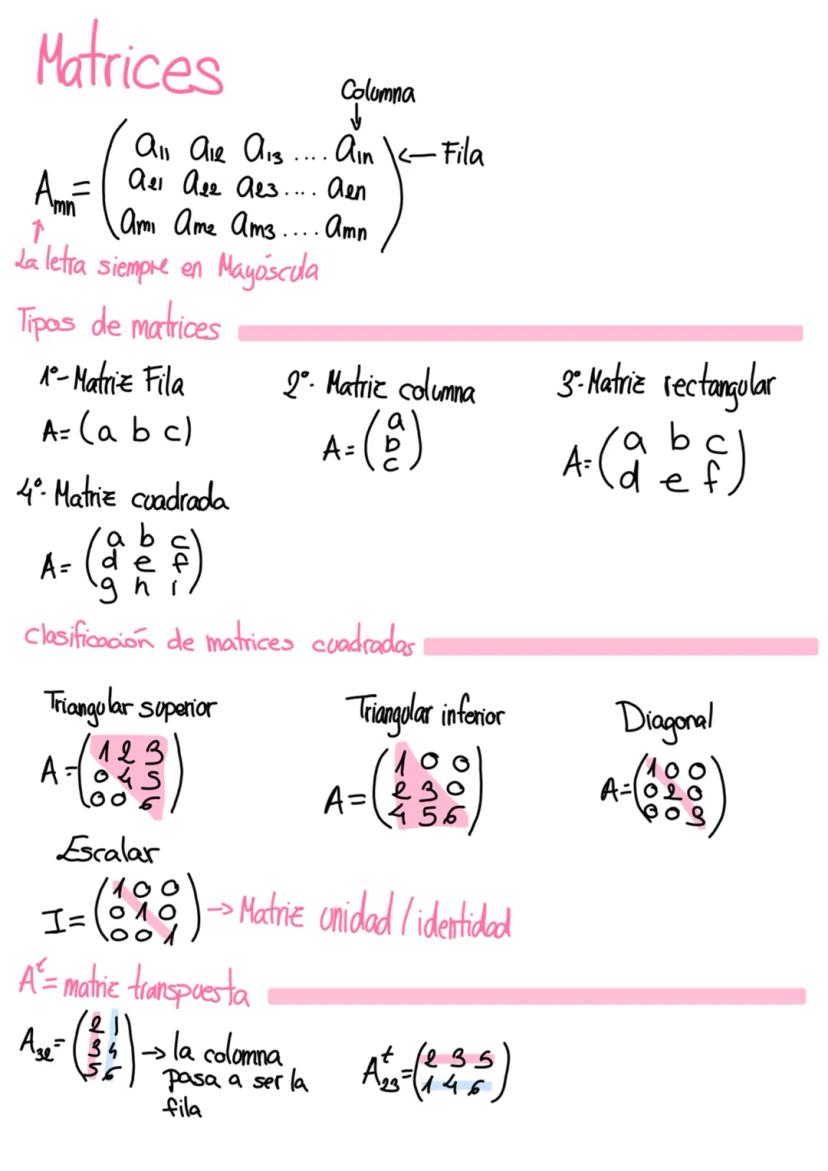 Matrices
Columna
↓
Amn = ( a11 a12 a13 .... a1n ) ← Fila
a21 a22 a23 .... a2n
am1 am2 am3 .... amn
↑
La letra siempre en Mayúscula
Tipos de matrices
1º- Matriz Fila
A= (a b c)
2º- Matriz columna
A= ( a
b
c )
3º- Matriz rectangular
A= ( a b c
d e f )
4º- Matriz cuadrada
A= ( a b c
d e f
g h i )
clasificación de matrices cuadradas
Triangular superior
A= ( 1 2 3
0 4 5
0 0 6 )
Triangular inferior
A= ( 1 0 0
2 3 0
4 5 6 )
Diagonal
A= ( 1 0 0
0 2 0
0 0 3 )
Escalar
I= ( 1 0 0
0 1 0
0 0 1 ) → Matriz unidad / identidad
A^t = matriz transpuesta
A32= ( 2 1
3 4
5 6 ) → la columna
pasa a ser la
fila
A^t23= ( 2 3 5
1 4 6 )